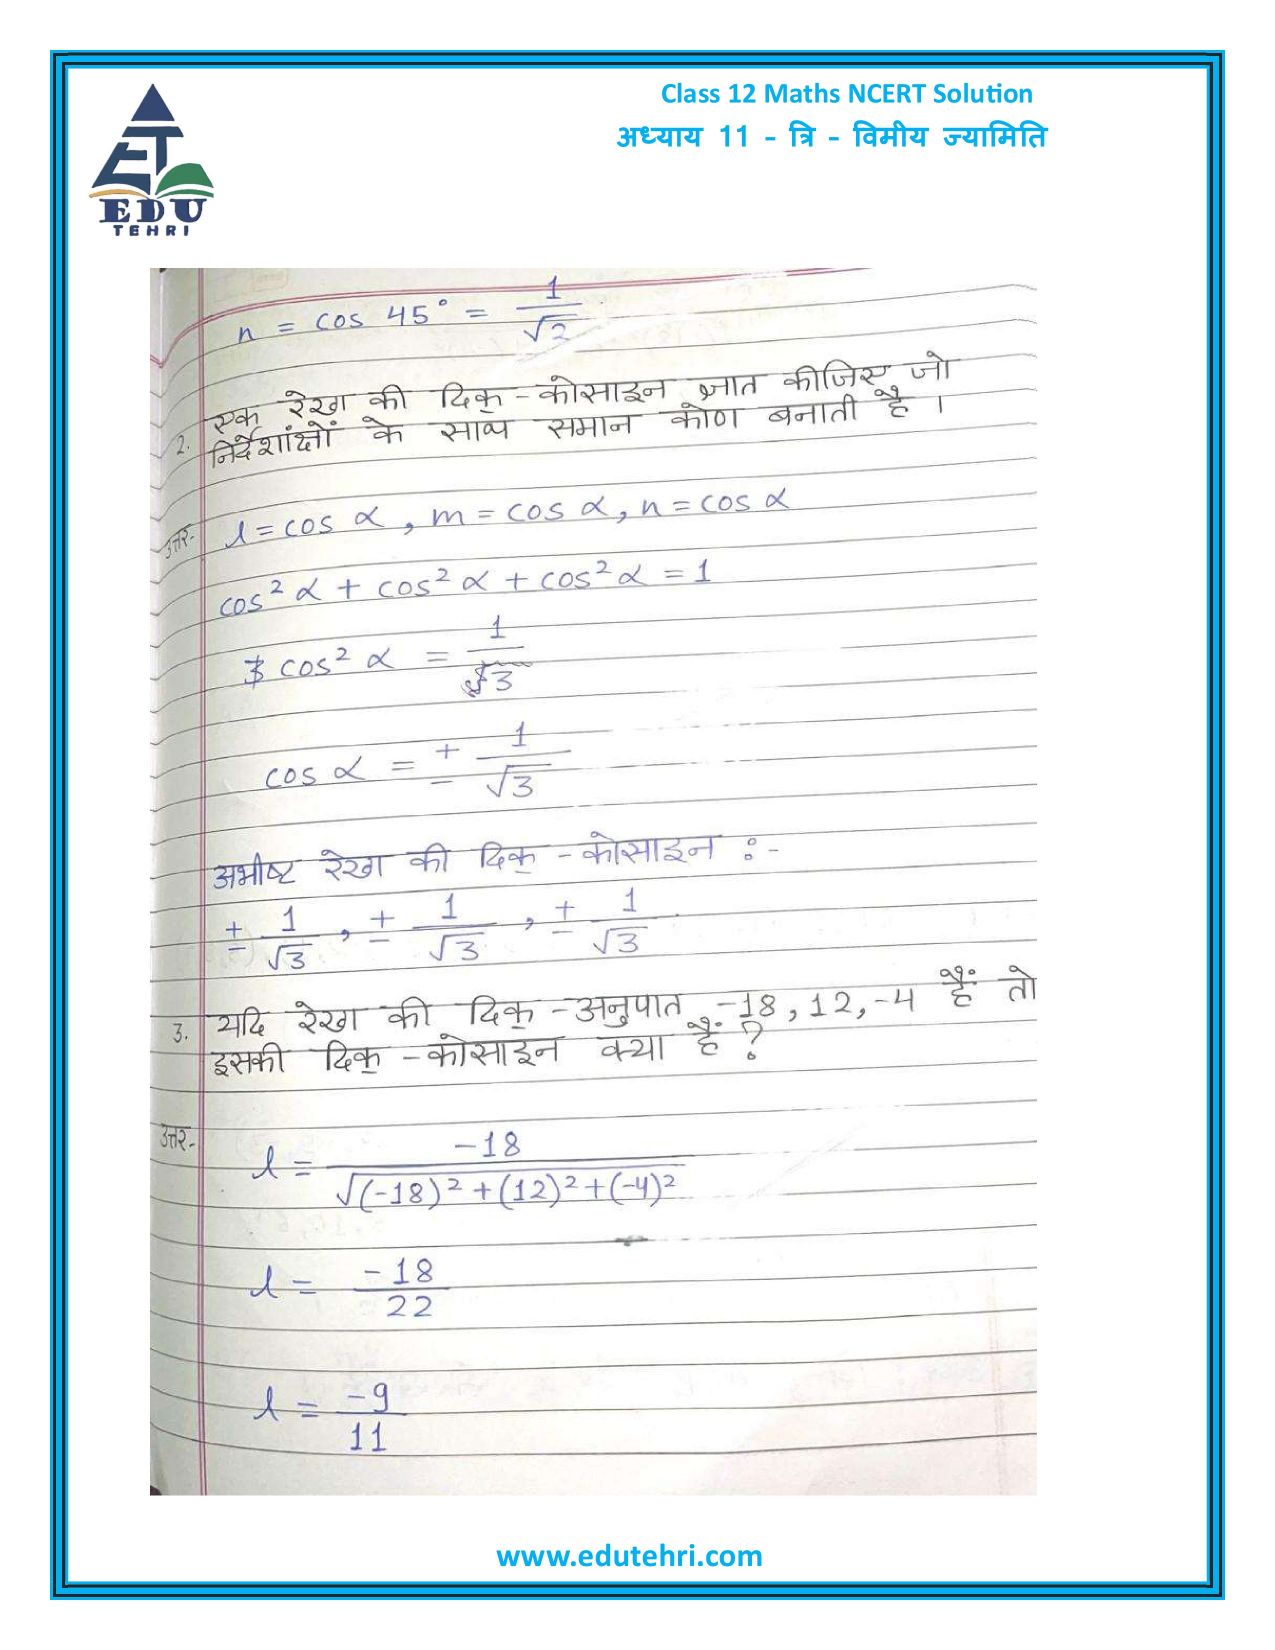 Class 12 Maths NCERT Solution
अध्याय 11 - त्रि - विमीय ज्यामिति
EDU
TEHRI
n = cos 45° = 1/√2
2. एक रेखा की दिक् - कोसाइन ज्ञात कीजिए जो
निर्देशांक्षों के साथ समान कोण बनाती है ।
उत्तर- l = cos α, m = cos α, n = cos α
cos² α + cos² α + cos² α = 1
cos² α = 1/3
cos α = ± 1/√3
अभीष्ट रेखा की दिक् - कोसाइन :-
± 1/√3, ± 1/√3, ± 1/√3
3. यदि रेखा की दिक् - अनुपात -18, 12, -4 हैं तो
इसकी दिक् - कोसाइन क्या हैं ?
उत्तर- l = -18/√(-18)² + (12)² + (-4)²
l = -18/22
l = -9/11
www.edutehri.com